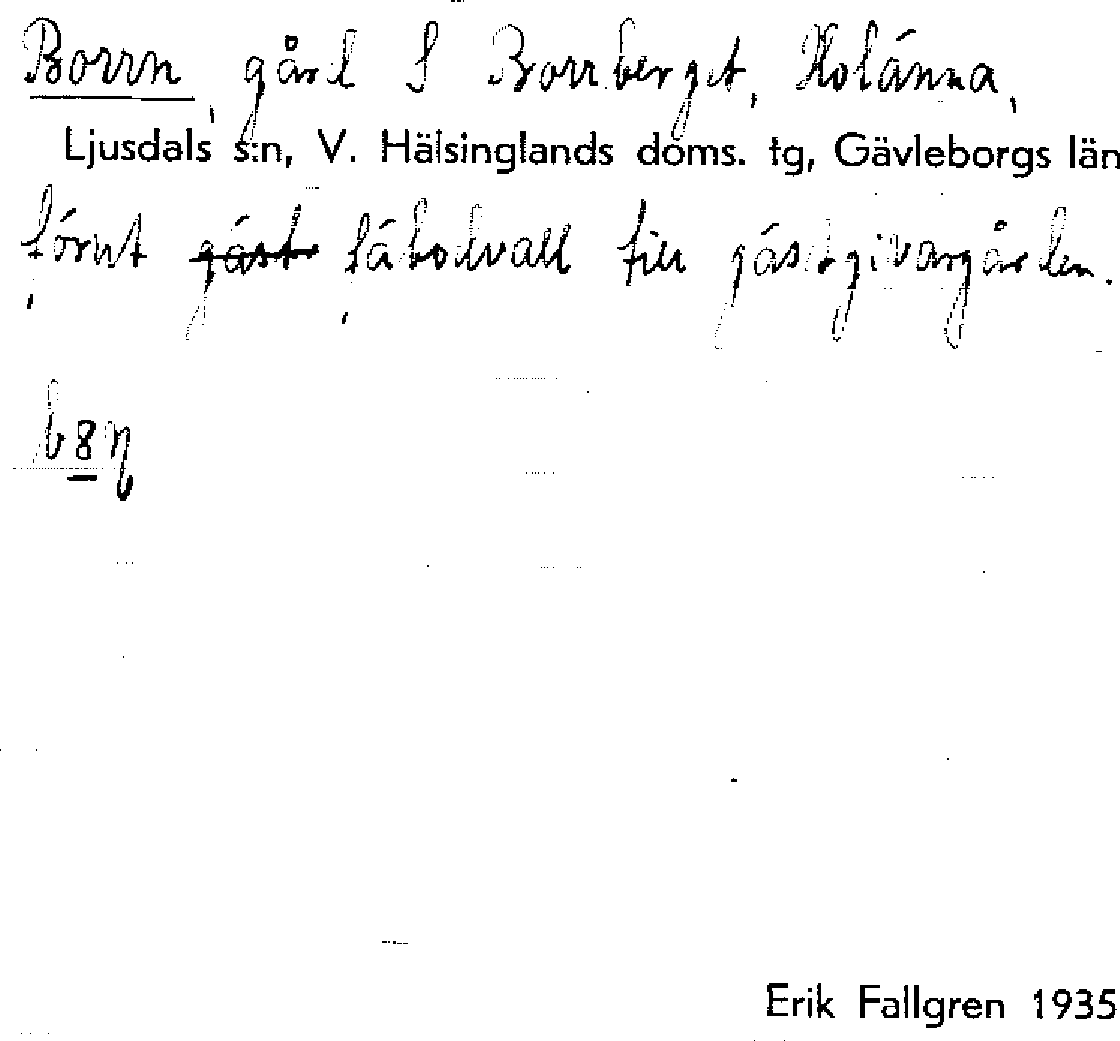 Borrn, gård S Borrberget, Holänna,
Ljusdals s:n, V. Hälsinglands doms. tg, Gävleborgs län
förut gäst fäbodvall till gästgivargården.
Erik Fallgren 1935